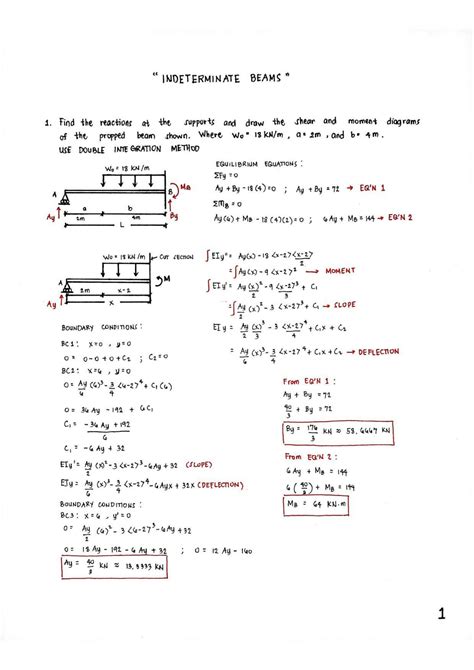 "INDETERMINATE BEAMS"
1. Find the reactions at the supports and draw the shear and moment diagrams
of the propped beam shown. Where Wo = 18 KN/m, a = 2m, and b = 4m.
USE DOUBLE INTEGRATION METHOD
Wo = 18 KN/m
MB
A
B
a
b
Ay
2m
4m
By
L
EQUILIBRIUM EQUATIONS:
ΣFy = 0
Ay + By - 18(4) = 0 ; Ay + By = 72 → EQ'N 1
ΣMB = 0
Ay(6) + MB - 18(4)(2) = 0 ; 6Ay + MB = 144 → EQ'N 2
Wo = 18 KN/m
CUT SECTION
M
A
2m
x-2
Ay
x
∫EIy" = Ay(x) - 18 <x-2> <x-2>/2
= ∫Ay(x) - 9 <x-2>² → MOMENT
∫EIy' = Ay(x)²/2 - 9 <x-2>³/3 + C₁
= ∫Ay(x)²/2 - 3 <x-2>³ + C₁ → SLOPE
EIy = Ay(x)³/6 - 3/4 <x-2>⁴ + C₁x + C₂
= Ay(x)³/6 - 3/4 <x-2>⁴ + C₁x + C₂ → DEFLECTION
BOUNDARY CONDITIONS:
BC1: x = 0, y = 0
0 = 0 - 0 + 0 + C₂ ; C₂ = 0
BC2: x = 6, y = 0
0 = Ay/6 (6)³ - 3/4 <6-2>⁴ + C₁(6)
0 = 36Ay - 192 + 6C₁
C₁ = -36Ay + 192/6
C₁ = -6Ay + 32
EIy' = Ay/2 (x)² - 3 <x-2>³ - 6Ay + 32 (SLOPE)
EIy = Ay/6 (x)³ - 3/4 <x-2>⁴ - 6Ayx + 32x (DEFLECTION)
BOUNDARY CONDITIONS:
BC3: x = 6, y' = 0
0 = Ay/2 (6)² - 3 <6-2>³ - 6Ay + 32
0 = 18Ay - 192 - 6Ay + 32 ; 0 = 12Ay - 160
Ay = 40/3 KN ≈ 13.3333 KN
From EQ'N 1:
Ay + By = 72
40/3 + By = 72
By = 176/3 KN ≈ 58.6667 KN
From EQ'N 2:
6Ay + MB = 144
6(40/3) + MB = 144
MB = 64 KN.m
1